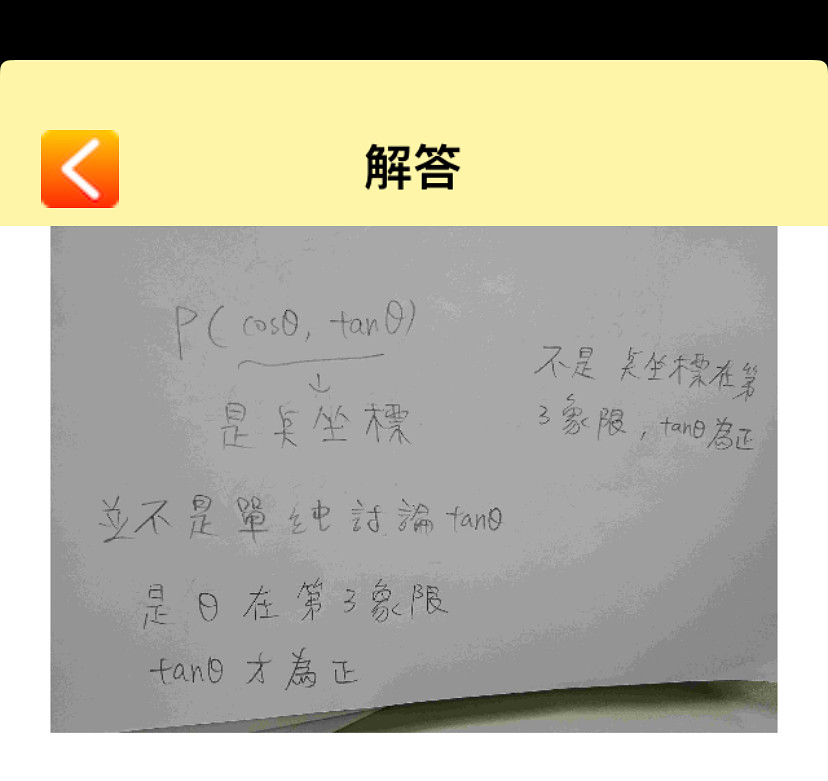 解答
P(cosθ, tanθ)
↓
是点坐標
不是点坐標在第
3象限,tanθ為正
並不是單純討論tanθ
是θ在第3象限
tanθ才為正